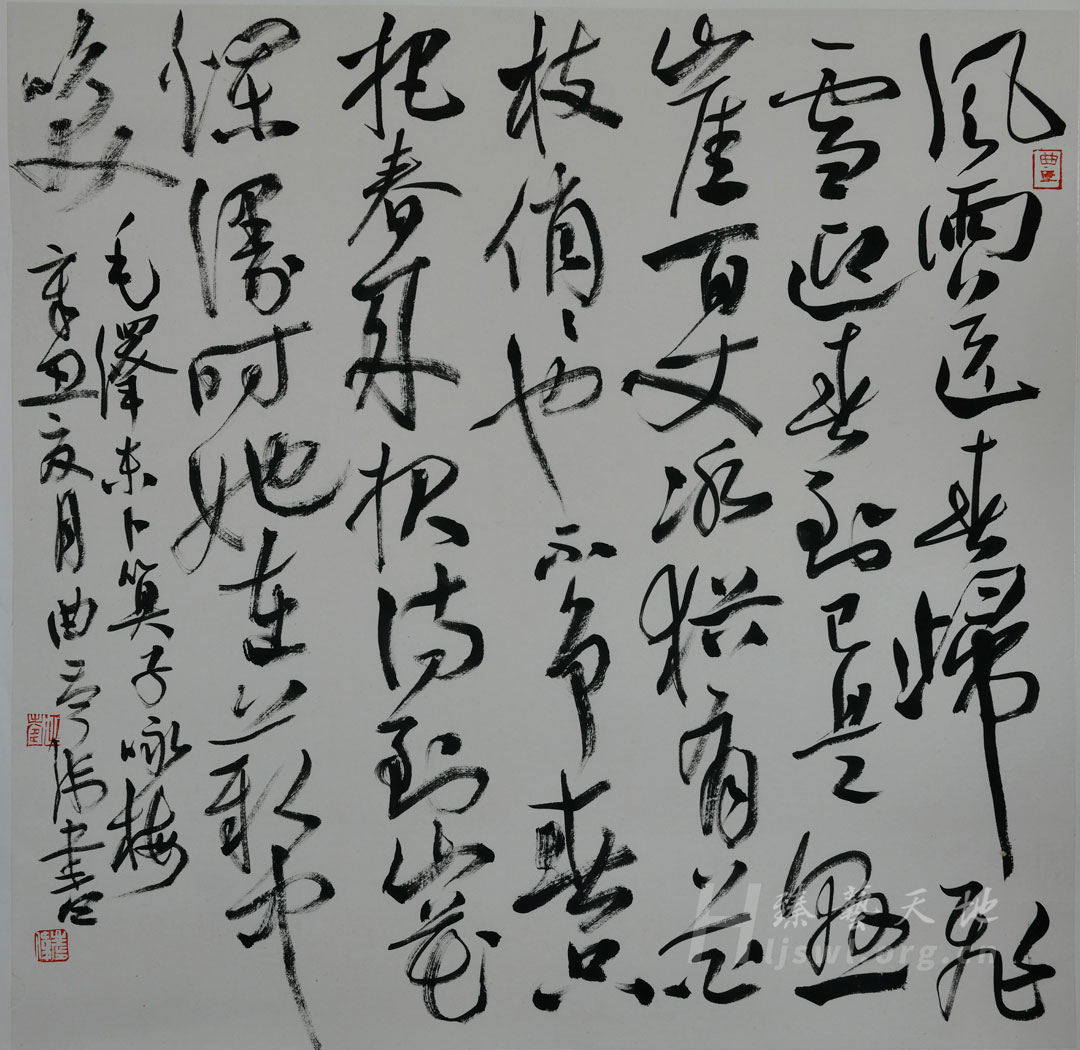 風雨送春歸飛
雪迎春到已是懸
崖百丈冰猶有花
枝俏俏也不爭春只
把春來报待到山花
爛漫時她在叢中
咲
毛澤東卜算子咏梅
辛丑夏月曲亭書
臻藝天地